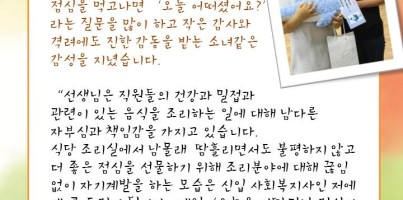 점심을 먹고나면 '오늘 어떠셨어요?'
라는 질문을 많이 하고 작은 감사와
격려에도 진한 감동을 받는 소녀같은
감성을 지녔습니다.
"선생님은 직원들의 건강과 밀접과
관련이 있는 음식을 조리하는 일에 대해 남다른
자부심과 책임감을 가지고 있습니다.
식당 조리실에서 남몰래 땀흘리면서도 불평하지 않고
더 좋은 점심을 선물하기 위해 조리분야에 대해 끊임
없이 자기계발을 하는 모습은 신입 사회복지사인 저에